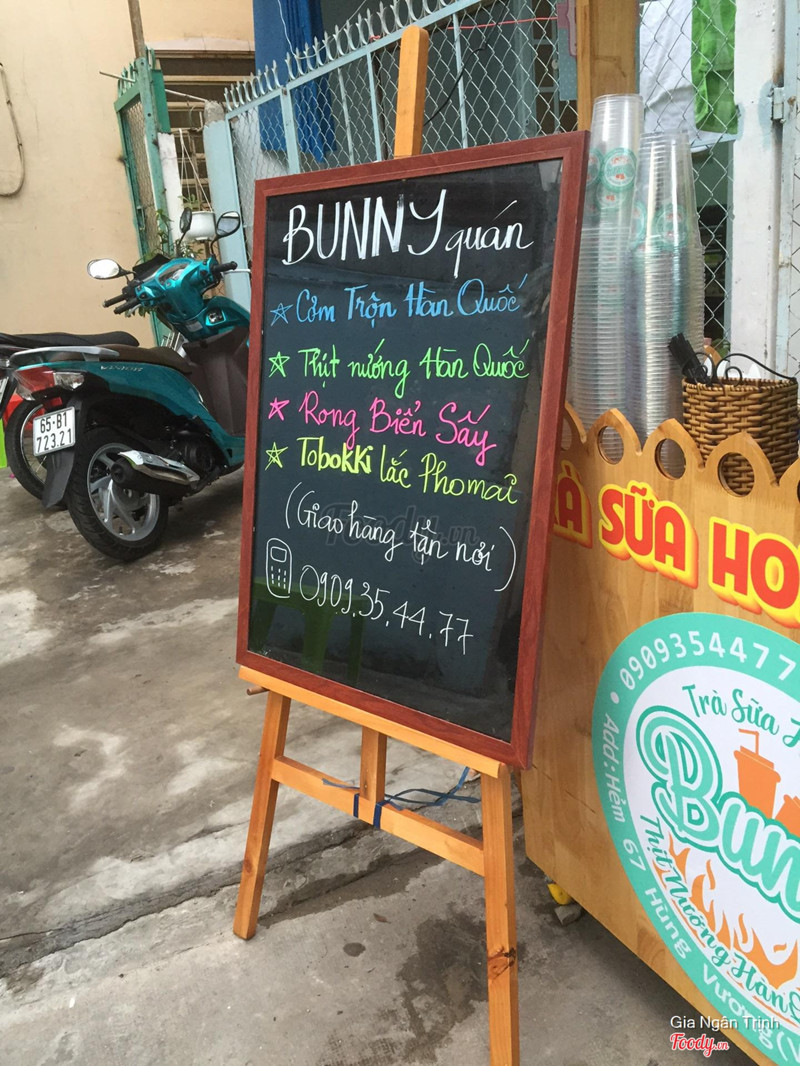 BUNNY quán
Cơm Trộn Hàn Quốc
Thịt nướng Hàn Quốc
Rong Biển Sấy
Tobokki lắc Phomai
(Giao hàng tận nơi)
0909.35.44.77
65-B1
723.21
SỮA HO
0909354477
Trà Sữa
Bun
Thịt Nướng Hàn
Add: Hẻm 67 Hùng Vương
Foody.vn
Gia Ngân Trịnh
Foody.vn